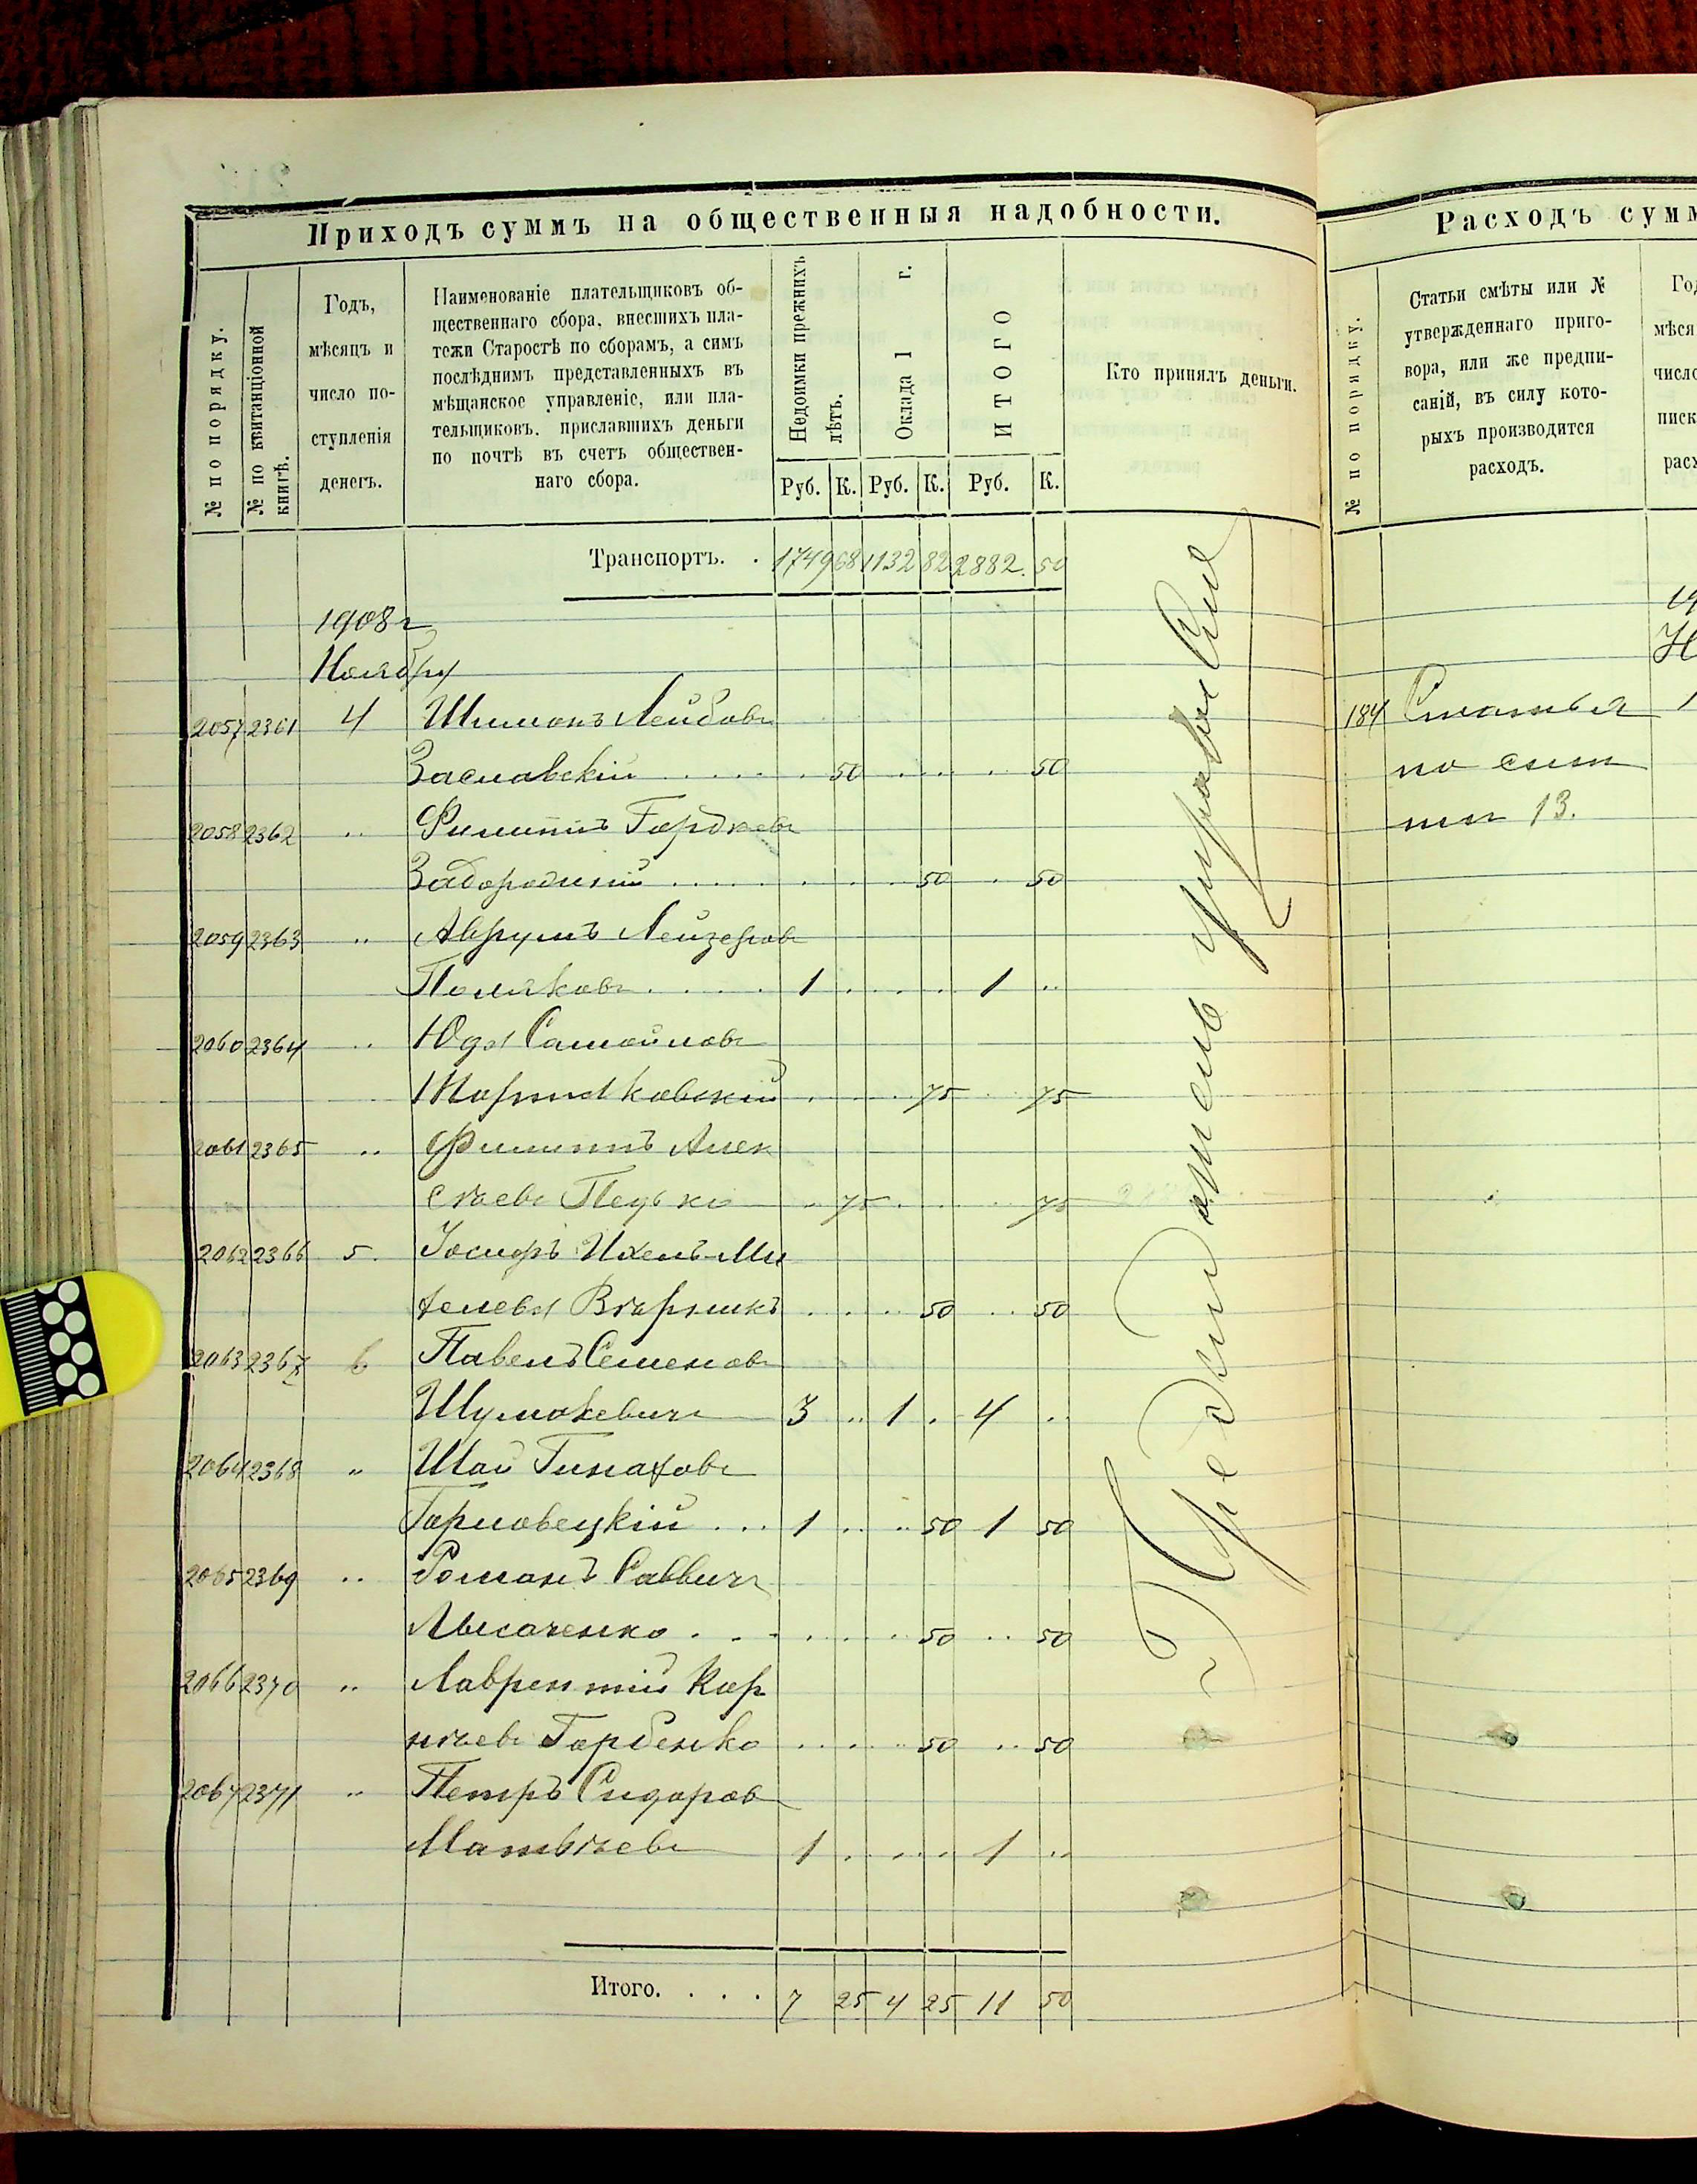 Приходъ суммъ на общественныя надобности.
№ по порядку.
№ по квитанціонной книгѣ.
Годъ,
мѣсяцъ и
число по-
ступленія
денегъ.
Наименованіе плательщиковъ об-
щественнаго сбора, внесшихъ пла-
тежи Старостѣ по сборамъ, а симъ
послѣднимъ представленныхъ въ
мѣщанское управленіе, или пла-
тельщиковъ, приславшихъ деньги
по почтѣ въ счетъ обществен-
наго сбора.
Недоимки прежнихъ
лѣтъ.
Оклада 1 г.
ИТОГО
Кто принялъ деньги.
Руб. К. Руб. К. Руб. К.
Транспортъ. . 1749 68 1132 82 2882. 50
1908 г
Ноябру
2057 2361 4 Шимонъ Лейбовъ
Заславскій 50 50
2058 2362 " Филиппъ Гордѣевъ
Забородній 50 50
2059 2363 " Аврумъ Лейзеровъ
Поляковъ 1 1 "
2060 2364 " Юда Самойловъ
75 75
2061 2365 " Филиппъ Алек
сѣевъ 75 75
2062 2366 5. Іосифъ Ихель-Ми
50 50
2063 2367 6 Павелъ Семеновъ
3 " 1 . 4 "
2064 2368 " Шая
1 50 1 50
2065 2369 " Романъ Саввичъ
Лысаченко 50 50
2066 2370 " Лаврентій Кор
нѣевъ Горбенко 50 50
2067 2371 " Петръ Сидоров
Матвѣевъ 1 1 "
Итого. . . . 7 25 4 25 11 50
Расходъ сумм
№ по порядку.
Статьи смѣты или №
утвержденнаго приго-
вора, или же предпи-
саній, въ силу кото-
рыхъ производится
расходъ.
Год
мѣся
число
писк
расх
19
Н
184 Статья 1
по смѣ
тѣ 13.